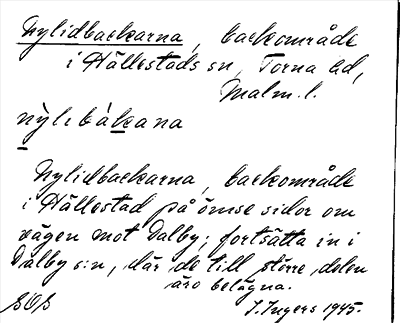 Nylidbackarna, backområde
i Hällestads sn, Torna hd,
Malm. l.
nỳlibákana
Nylidbackarna, backområde
i Hällestad på ömse sidor om
vägen mot Dalby; fortsätta in i
Dalby s:n, där de till större delen
äro belägna.
I. Ingers 1945.